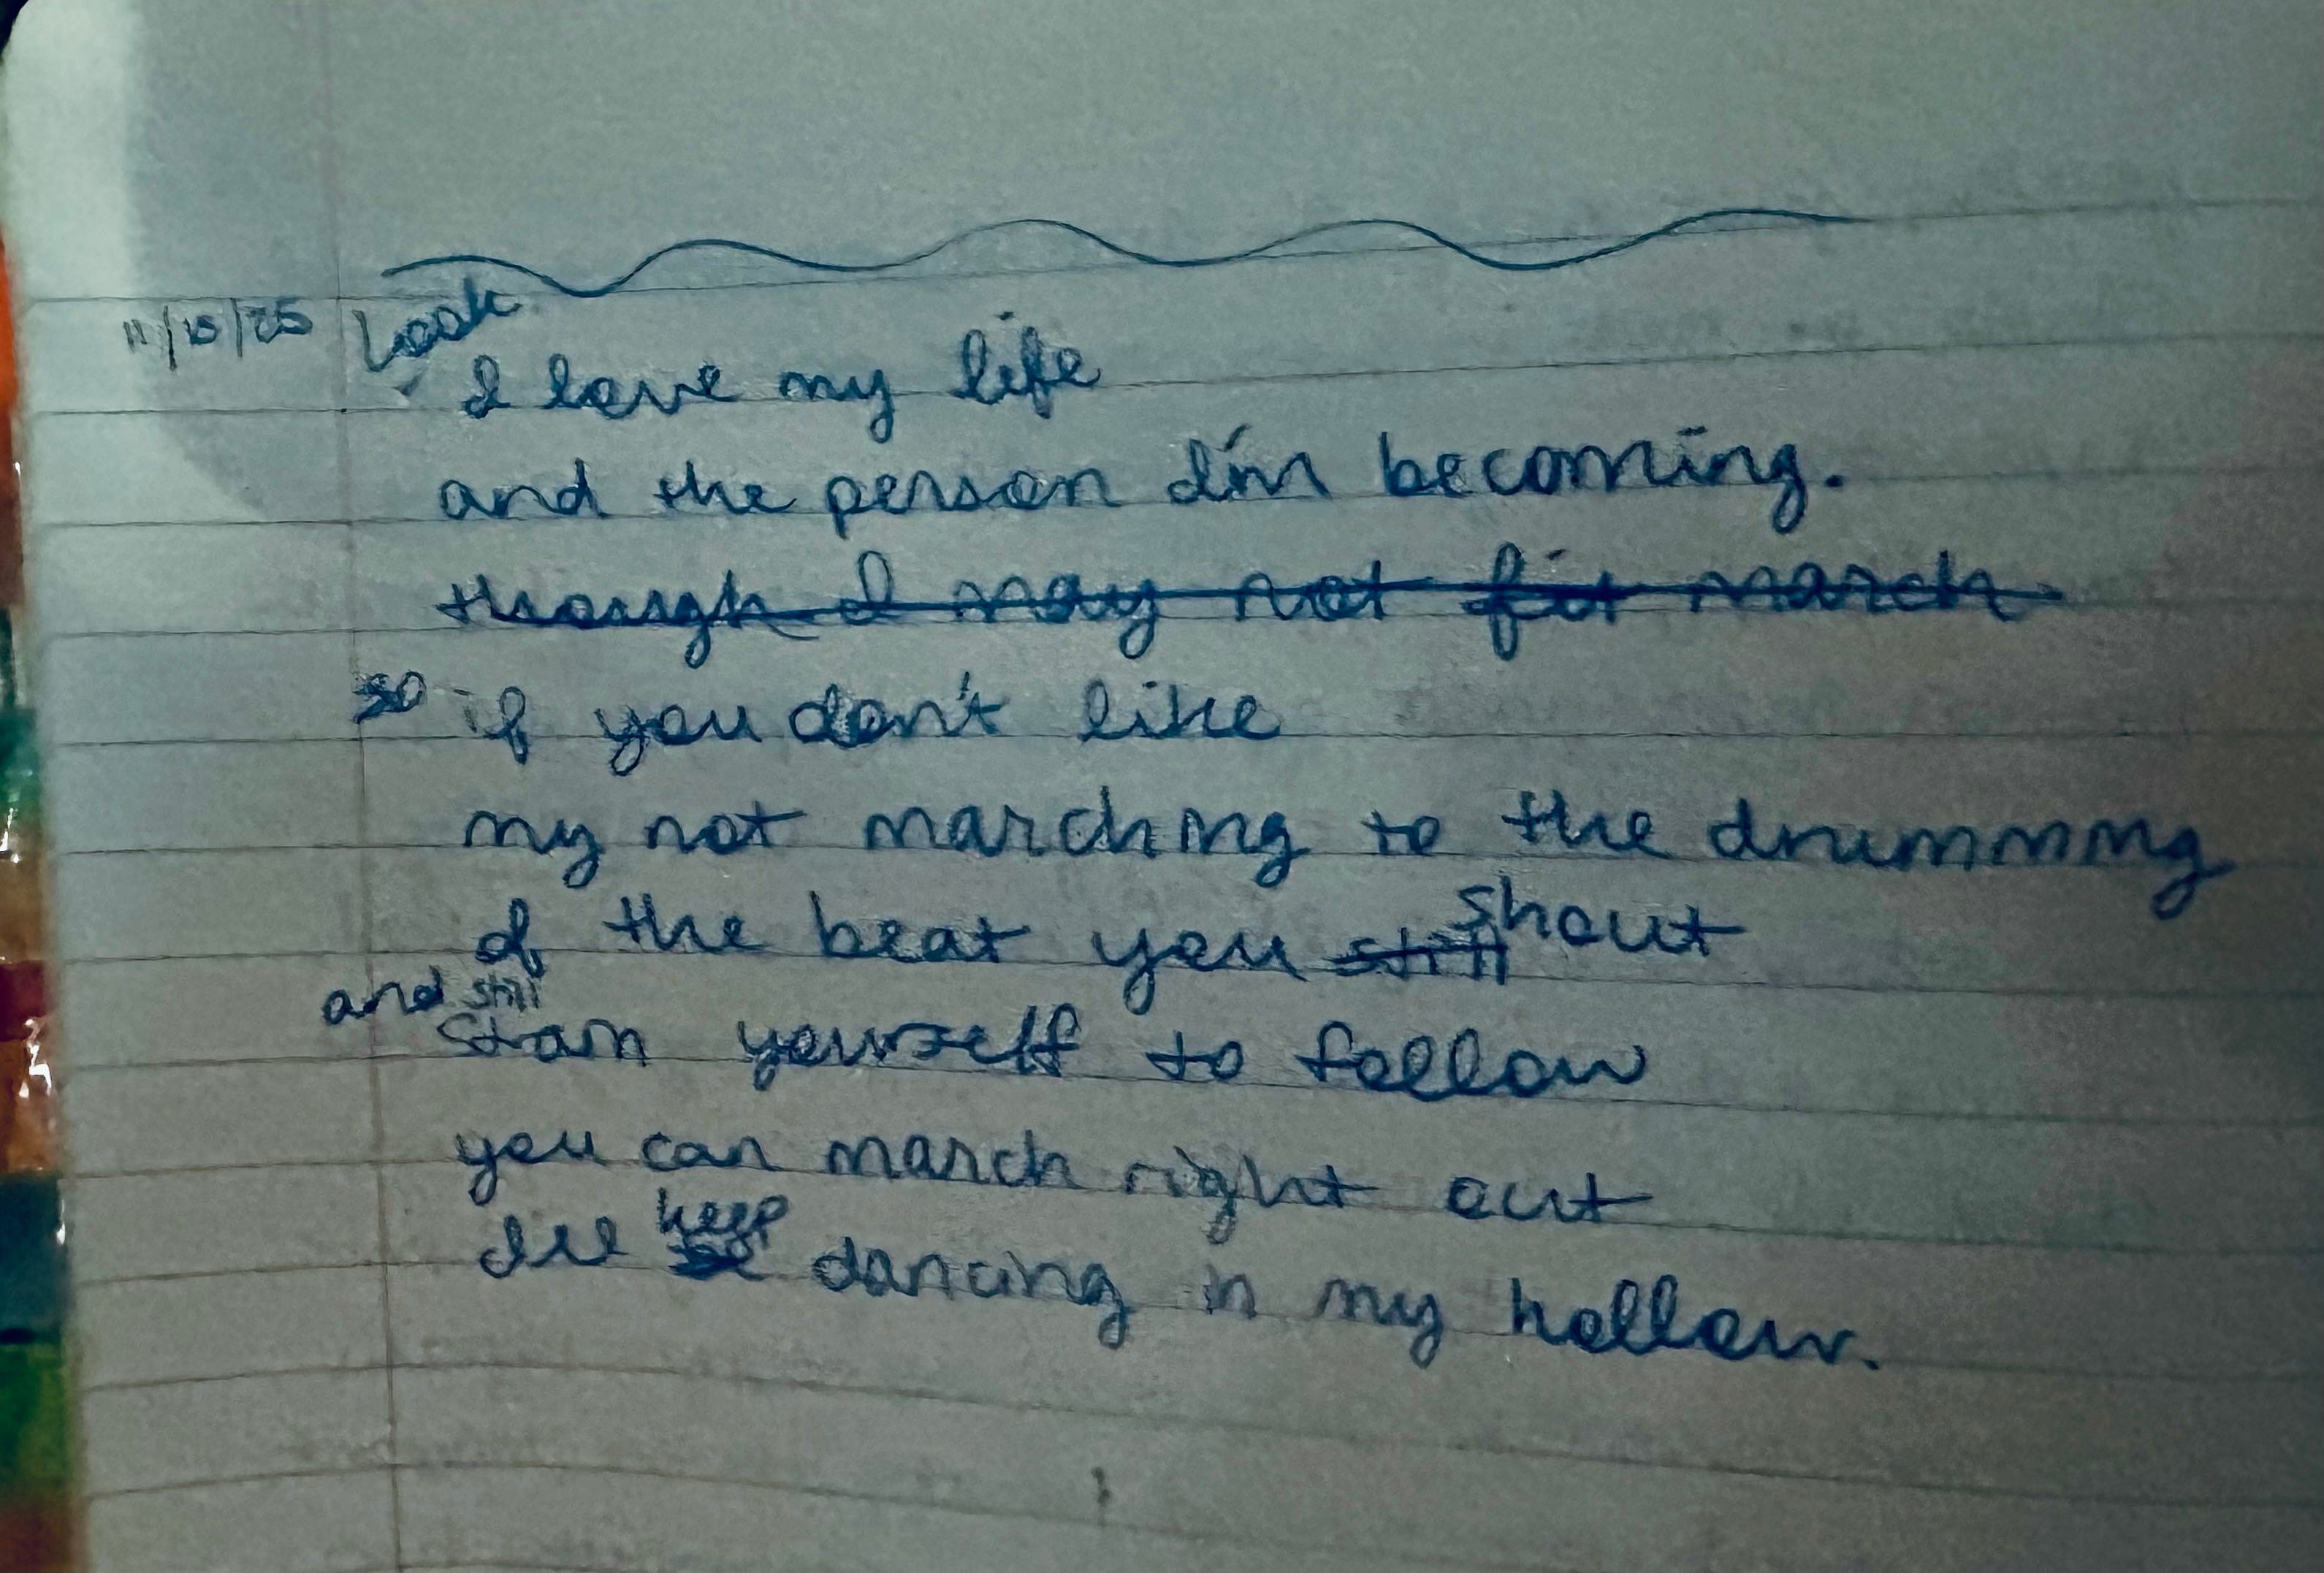 11/15/25 Look
I love my life
and the person I'm becoming.
though I may not fit march
so if you don't like
my not marching to the drumming
of the beat you still shout
and still
Stain yourself to follow
you can march right out
I'll keep be dancing in my hollow.